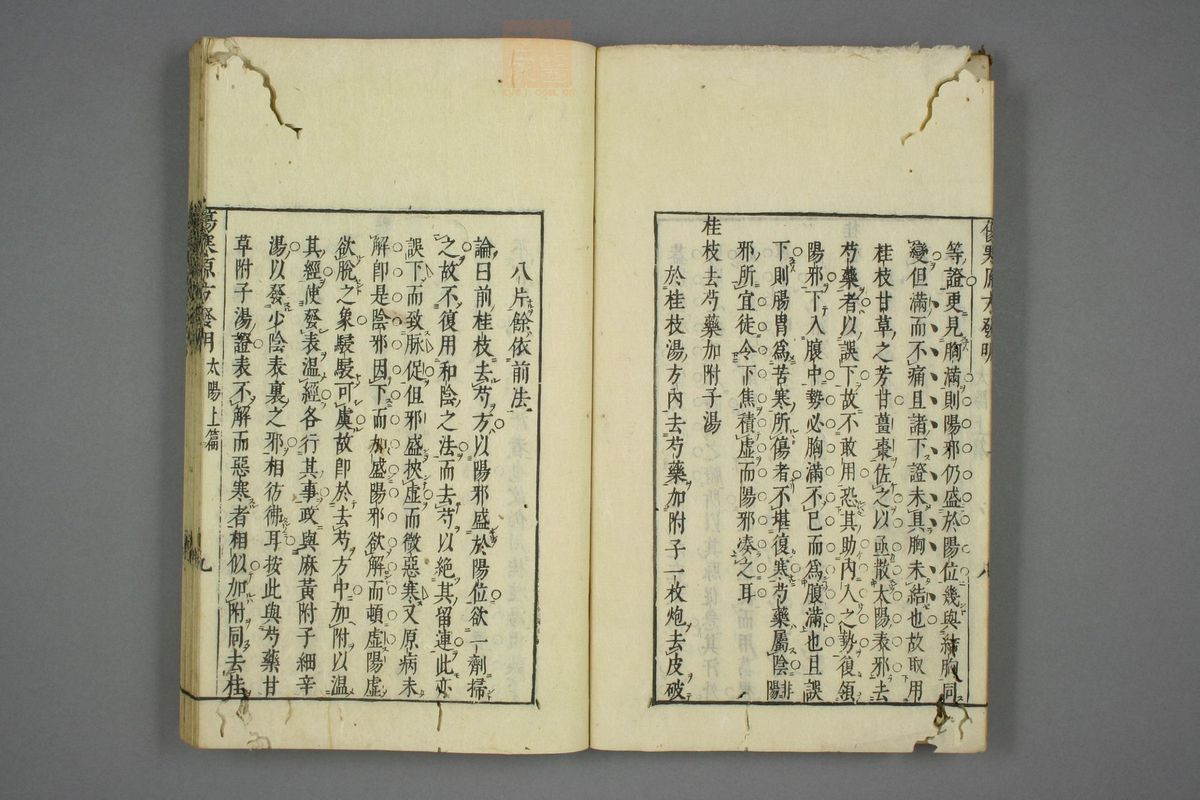 等證更見胸滿則陽邪仍盛於陽位幾與結胸同
變但滿而不痛且諸下證未具胸未結也故取用
桂枝甘草之芳甘薑棗佐之以亟散太陽表邪去
芍藥者以誤下故不敢用恐其助內入之勢復領
陽邪下入腹中勢必胸滿不已而爲腹滿也且誤
下則腸胃爲苦寒所傷者不堪復寒芍藥屬陰非陽
邪所宜徒令下焦積虛而陽邪凑之耳
桂枝去芍藥加附子湯
於桂枝湯方內去芍藥加附子一枚炮去皮破
八片餘依前法
論曰前桂枝去芍方以陽邪盛於陽位欲一劑掃
之故不復用和陰之法而去芍以絕其留連此亦
誤下而致脉促但邪盛挾虛而微惡寒又原病未
解卽是陰邪因下而加盛陽邪欲解而頓虛陽虛
欲脫之象駸駸可虞故卽於去芍方中加附以溫
其經使發表溫經各行其事政與麻黃附子細辛
湯以發少陰表裏之邪相彷彿耳按此與芍藥甘
草附子湯證表不解而惡寒者相似加附同去桂
傷寒原方發明 太陽上篇 九